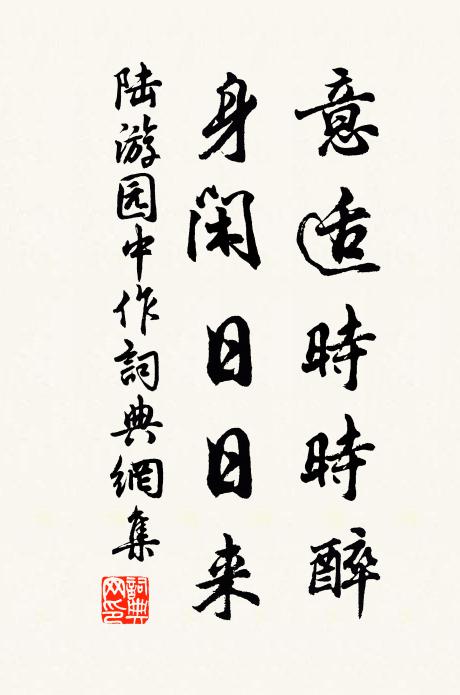 意适時時醉
身閑日日来
陆游园中作詞典網集
詞典网印